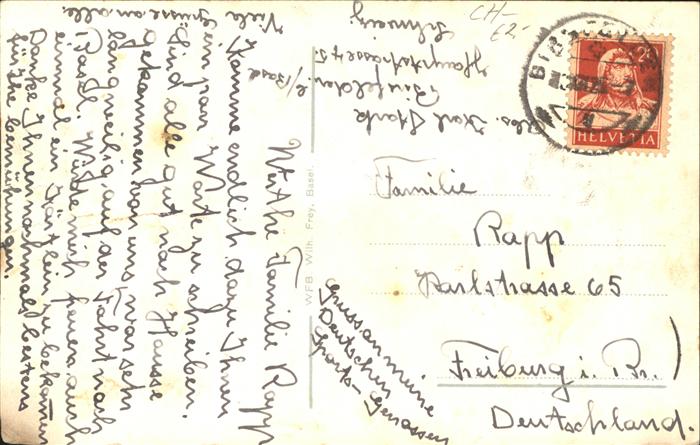 Werthe Familie Rapp
Komme endlich dazu Ihnen
ein paar Worte zu schreiben.
Sind alle gut nach Hausse
gekommen von uns war sehr
langweilig auf der Fahrt nach
Basel. Würde mich freuen auch
einmal ein Kärtlein zu bekommen
Danke Ihnen nochmals bestens
für Ihre Bemühungen.
Viele Grüsse an alle.
Abs. Karl Stark
Birsfelden b/Basel
Hauptstrasse 45
Schweiz
CH-
Familie
Rapp
Karlstrasse 65
Freiburg i. Br.)
Deutschland.
Gruss an meine
Deutschen
Sports-Genossen
WFB Wilh. Frey, Basel.
25
HELVETIA